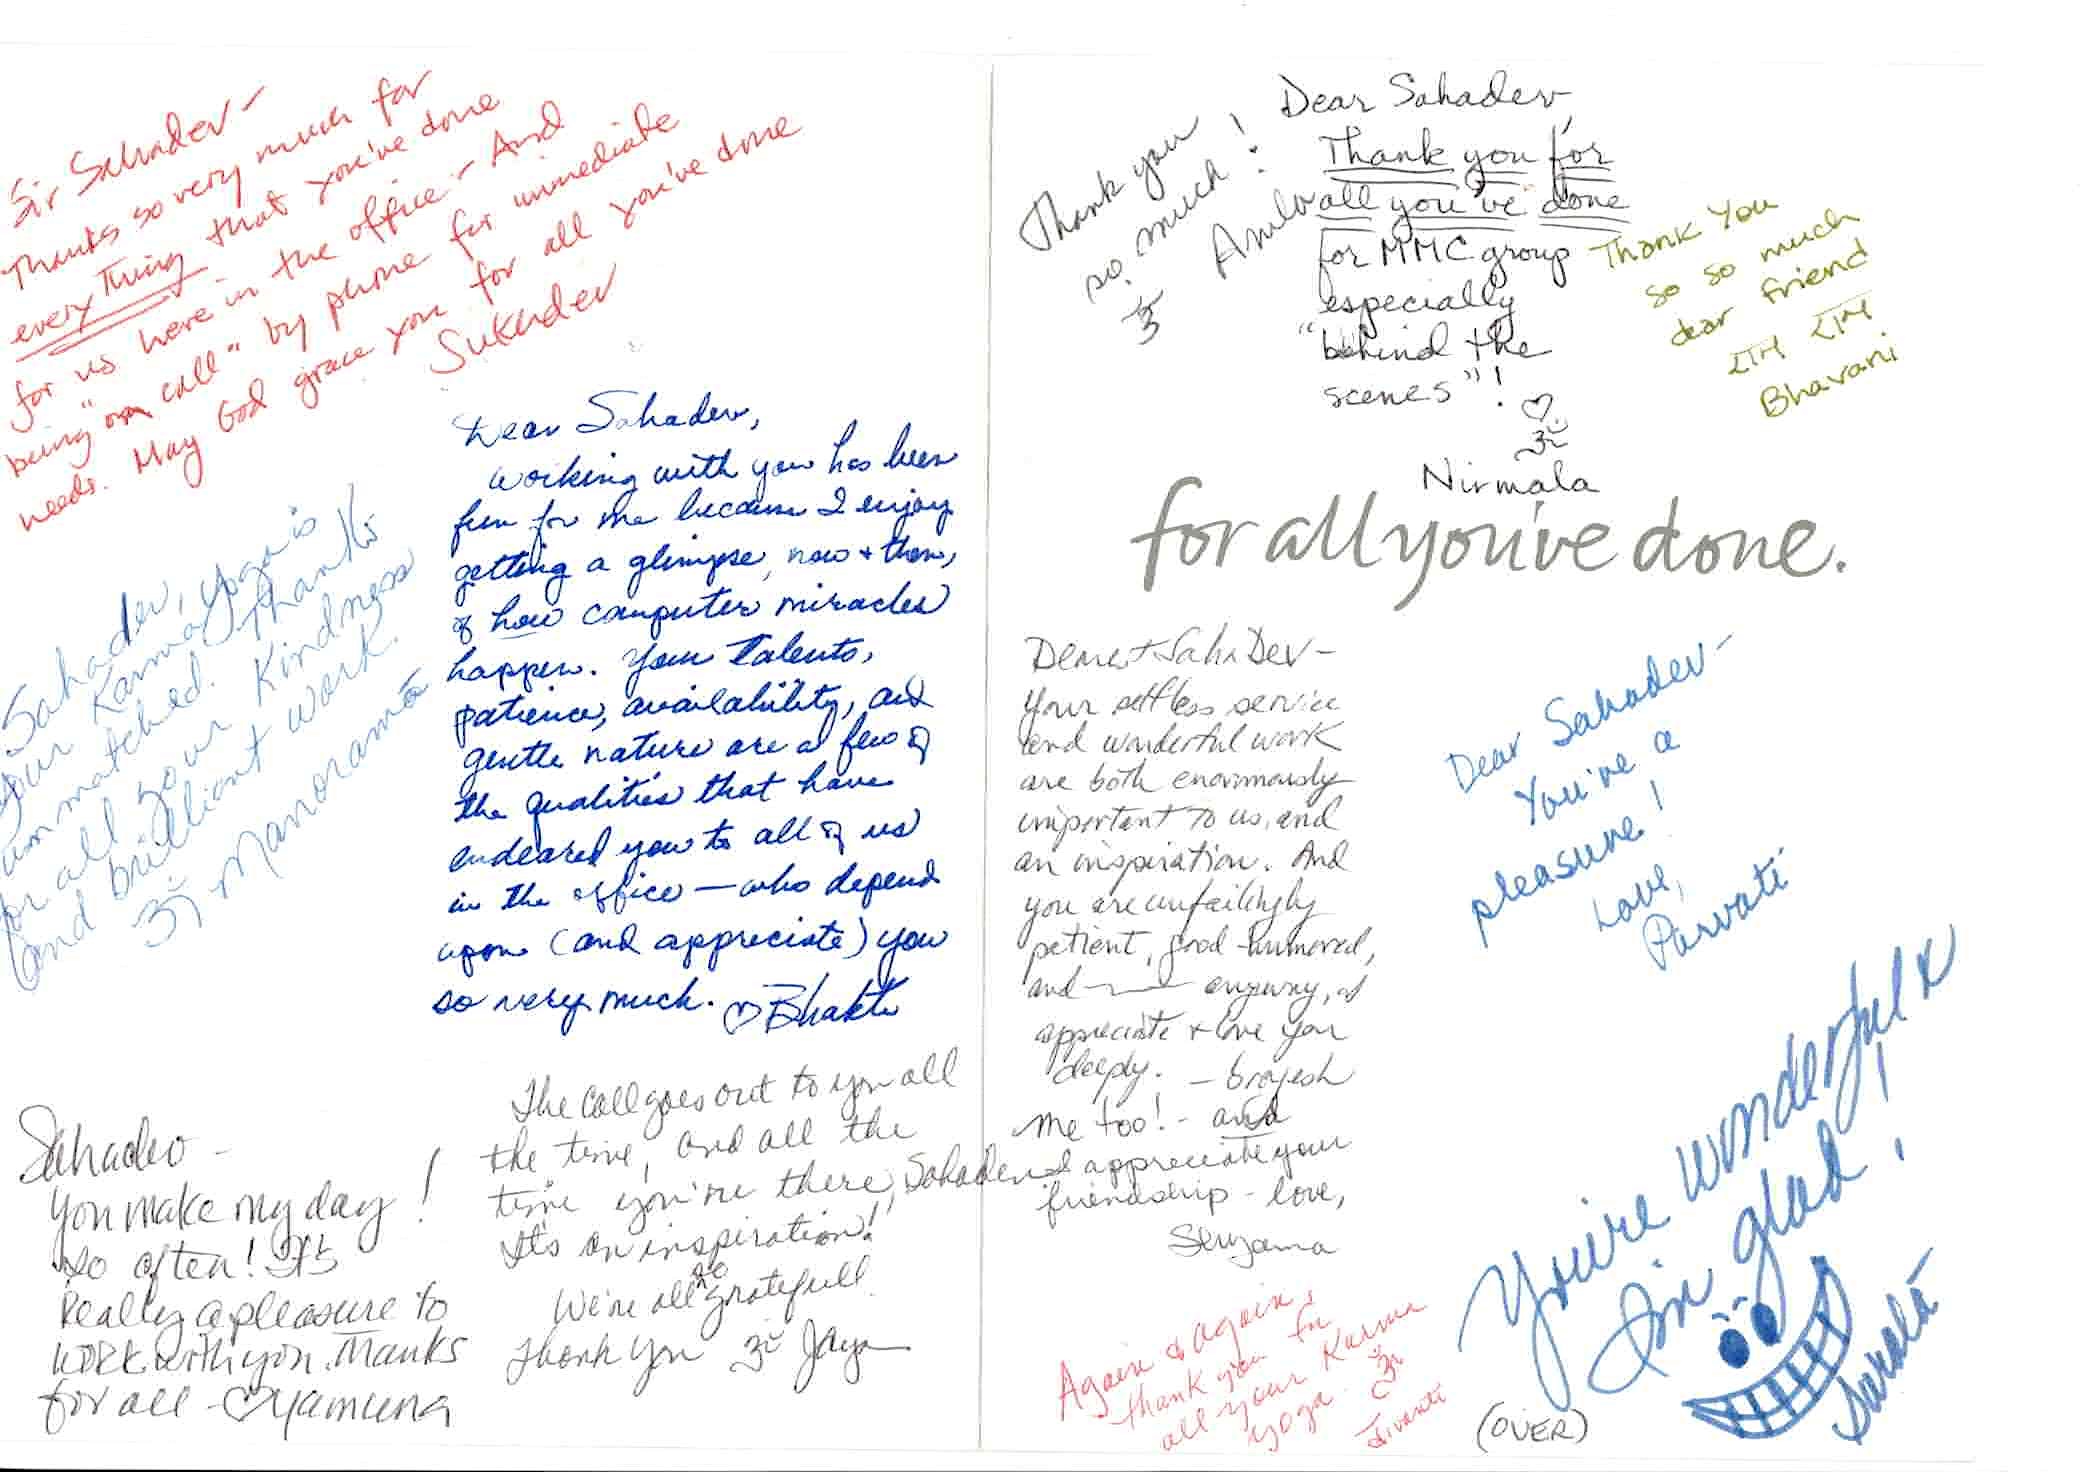 Sir Sahadev –
Thanks so very much for
everything that you've done
for us here in the office – And
being "on call" by phone for immediate
needs. May God grace you for all you've done
Sukhdev
Dear Sahadev,
working with you has been
fun for me because I enjoy
getting a glimpse, now + then,
of how computer miracles
happen. Your talents,
patience, availability, and
gentle nature are a few of
the qualities that have
endeared you to all of us
in the office — who depend
upon (and appreciate) you
so very much. ♡ Bhakti
Sahadev, yoga is
your Karma
unmatched. Thanks
for all your Kindness
and brilliant work.
ॐ Manorama
Sahadev –
You make my day !
so often! ॐ
Really a pleasure to
work with you. Thanks
for all – ♡ Yamuna
The call goes out to you all
the time, and all the
time you're there, Sahadev
It's an inspiration!
We're all so gratefull.
Thank you ॐ Jaya
Thank you
so much!
ॐ
Dear Sahadev,
Thank you for
all you've done
for MMC group
especially
"behind the
scenes"!
♡
ॐ
Nirmala
Thank You
so so much
dear friend
Bhavani
for all you've done.
Dearest SahaDev –
Your selfless service
and wonderful work
are both enormously
important to us, and
an inspiration. And
you are unfailingly
patient, good-humored,
and anyway, I
appreciate + love you
deeply. – brajesh
Me too! – and
appreciate your
friendship – love,
Suryama
Dear Sahadev –
You're a
pleasure!
Love,
Parvati
You're wonderful &
I'm glad!
Sarala
Again & again,
thank you for
all your Karma
yoga. ॐ
Jivanti
(OVER)